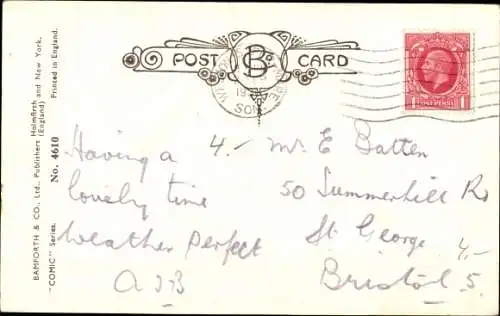 BAMFORTH & CO., Ltd. Publishers Holmfirth and New York.
(England) Printed in England.
"COMIC" Series. No. 4610
POST B CARD
1 ONE PENNY 1
Having a
lovely time
Weather Perfect
4.-
Mr. E Batten
50 Summerhill Rd
St. George
Bristol 5.
4.-